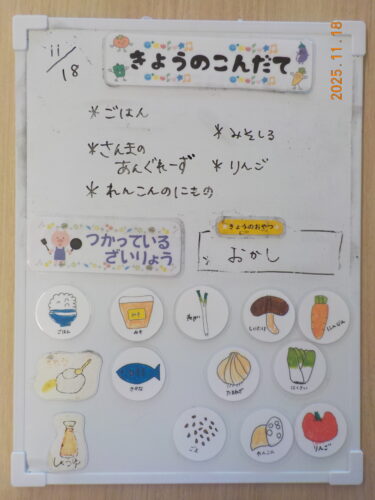 2025.11.18
11/18
きょうのこんだて
*ごはん
*みそしる
*さんまの
あんぐれーず
*りんご
*れんこんのにもの
つかっている
ざいりょう
きょうのおやつ
おかし
ごはん
みそ
みそ
ねぎ
しいたけ
にんじん
さかな
たまねぎ
はくさい
しょうゆ
ごま
れんこん
りんご